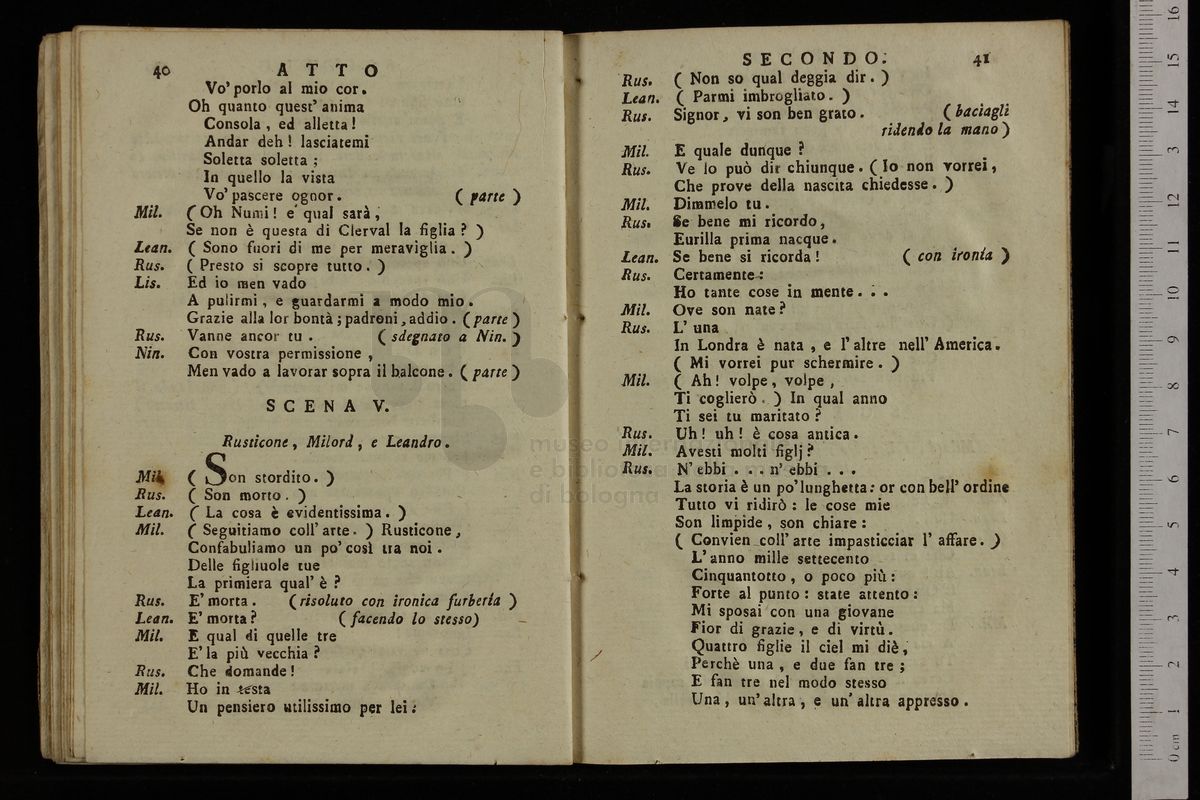 40 ATTO
Vo' porlo al mio cor.
Oh quanto quest' anima
Consola, ed alletta!
Andar deh! lasciatemi
Soletta soletta;
In quello la vista
Vo' pascere ognor. (parte)
Mil. (Oh Numi! e qual sarà,
Se non è questa di Clerval la figlia?)
Lean. (Sono fuori di me per meraviglia.)
Rus. (Presto si scopre tutto.)
Lis. Ed io men vado
A pulirmi, e guardarmi a modo mio.
Grazie alla lor bontà; padroni, addio. (parte)
Rus. Vanne ancor tu. (sdegnato a Nin.)
Nin. Con vostra permissione,
Men vado a lavorar sopra il balcone. (parte)
SCENA V.
Rusticone, Milord, e Leandro.
Mil. (Son stordito.)
Rus. (Son morto.)
Lean. (La cosa è evidentissima.)
Mil. (Seguitiamo coll' arte.) Rusticone,
Confabuliamo un po' così tra noi.
Delle figliuole tue
La primiera qual' è?
Rus. E' morta. (risoluto con ironica furberia)
Lean. E' morta? (facendo lo stesso)
Mil. E qual di quelle tre
E' la più vecchia?
Rus. Che domande!
Mil. Ho in testa
Un pensiero utilissimo per lei:
SECONDO. 41
Rus. (Non so qual deggia dir.)
Lean. (Parmi imbrogliato.)
Rus. Signor, vi son ben grato. (baciagli
ridendo la mano)
Mil. E quale dunque?
Rus. Ve lo può dir chiunque. (Io non vorrei,
Che prove della nascita chiedesse.)
Mil. Dimmelo tu.
Rus. Se bene mi ricordo,
Eurilla prima nacque.
Lean. Se bene si ricorda! (con ironia)
Rus. Certamente:
Ho tante cose in mente...
Mil. Ove son nate?
Rus. L' una
In Londra è nata, e l' altre nell' America.
(Mi vorrei pur schermire.)
Mil. (Ah! volpe, volpe,
Ti coglierò.) In qual anno
Ti sei tu maritato?
Rus. Uh! uh! è cosa antica.
Mil. Avesti molti figlj?
Rus. N' ebbi... n' ebbi...
La storia è un po' lunghetta: or con bell' ordine
Tutto vi ridirò: le cose mie
Son limpide, son chiare:
(Convien coll' arte impasticciar l' affare.)
L' anno mille settecento
Cinquantotto, o poco più:
Forte al punto: state attento:
Mi sposai con una giovane
Fior di grazie, e di virtù.
Quattro figlie il ciel mi diè,
Perchè una, e due fan tre;
E fan tre nel modo stesso
Una, un' altra, e un' altra appresso.